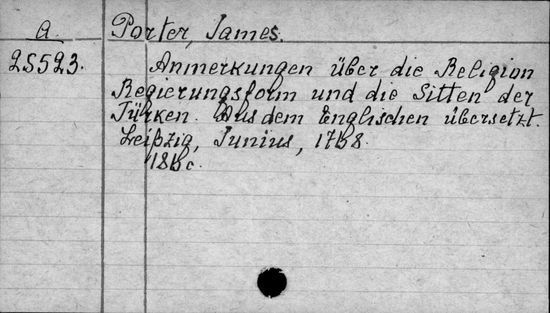 A. Porter, James.
25523. Anmerkungen über die Religion
Regierungsform und die Sitten der
Türken. Aus dem Englischen übersetzt.
Leipzig, Junius, 1768.
18bc.